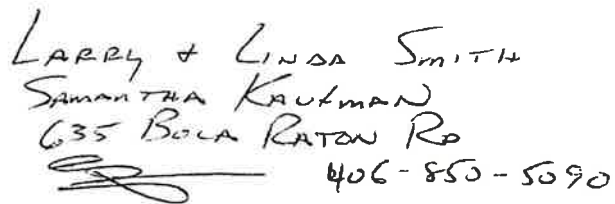 Larry + Linda Smith
Samantha Kaufman
635 Boca Raton Rd
406-850-5090